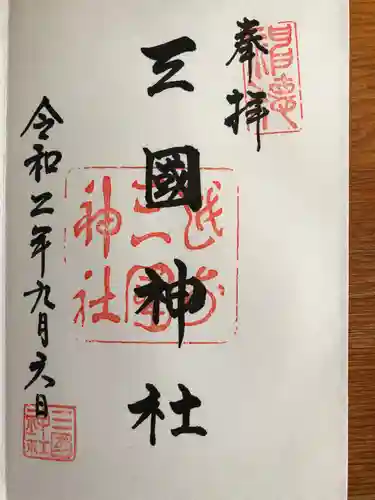 奉拝
三國神社
越前
三国
神社
令和二年九月六日
三國
神社